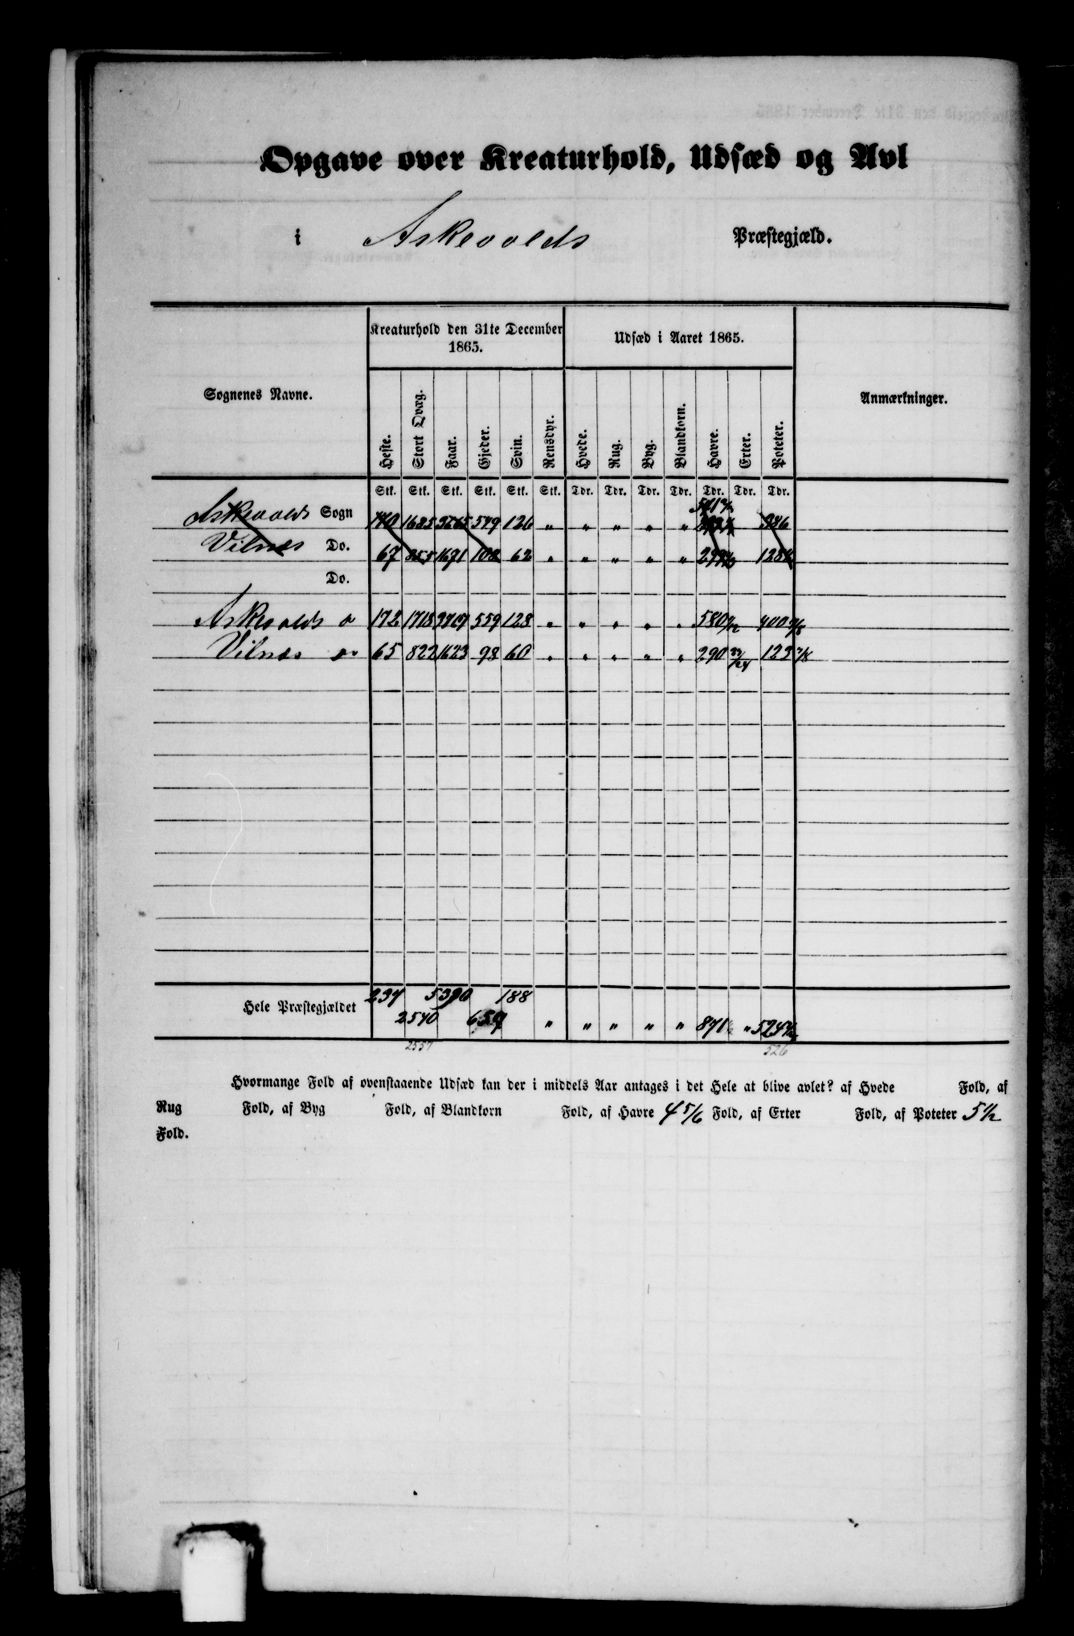 Opgave over Kreaturhold, Udsæd og Avl
i Askevolds Præstegjæld.
Sognenes Navne.
Kreaturhold den 31te December 1865.
Udsæd i Aaret 1865.
Anmærkninger.
Heste. Stort Qvæg. Faar. Gjeder. Svin. Rensdyr. Hvede. Rug. Byg. Blandkorn. Havre. Erter. Poteter.
Stk. Stk. Stk. Stk. Stk. Stk. Tdr. Tdr. Tdr. Tdr. Tdr. Tdr. Tdr.
Askevolds Sogn 170 1685 549 126 " " " " "
Vilnæs Do. 67 1671 102 62 " " " " "
Do.
Askevolds 172 1718 559 128 " " " " " 580 400
Vilnæs 65 822 1623 98 60 " " " " " 290 22/24 123
Hele Præstegjældet 237 2540 5390 657 188 " " " " " 871 "
2557 526
Hvormange Fold af ovenstaaende Udsæd kan der i middels Aar antages i det Hele at blive avlet? af Hvede Fold, af
Rug Fold, af Byg Fold, af Blandkorn Fold, af Havre 4 5/6 Fold, af Erter Fold, af Poteter 5 1/2
Fold.